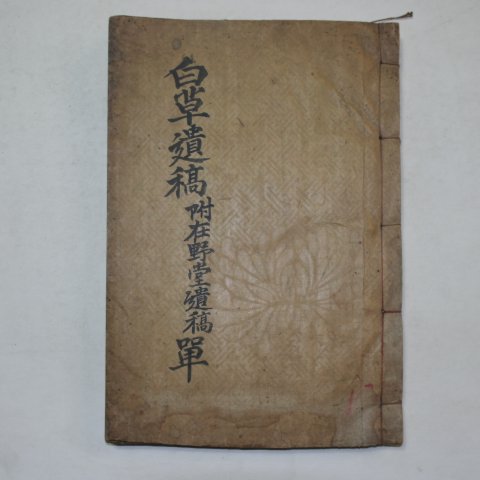 白草遺稿 附在野堂遺稿 單